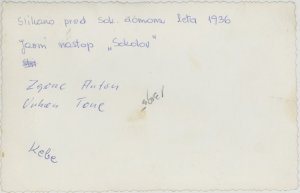 Slikano pred Sok. domom leta 1936
Javni nastop „Sokolov"
Zgonc Anton
Tone
Kebe